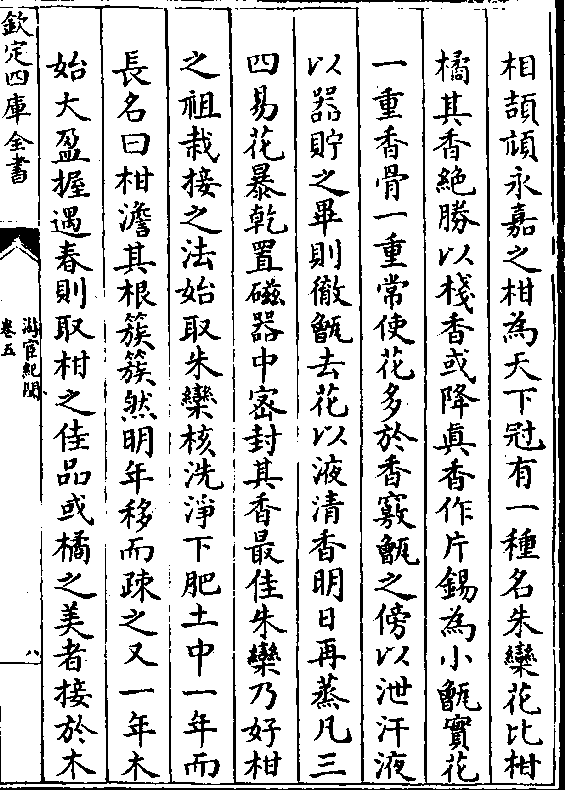 相頡頏永嘉之柑為天下冠有一種名朱欒花比柑
橘其香絶勝以棧香或降真香作片錫為小甑實花
一重香骨一重常使花多於香竅甑之傍以泄汗液
以器貯之畢則徹甑去花以液漬香明日再蒸凡三
四易花暴乾置磁器中密封其香最佳朱欒乃好柑
之祖栽接之法始取朱欒核洗淨下肥土中一年而
長名曰柑澹其根簇簇然明年移而疎之又一年木
始大盈握遇春則取柑之佳品或橘之美者接於木
欽定四庫全書
游宦紀聞
卷五
八